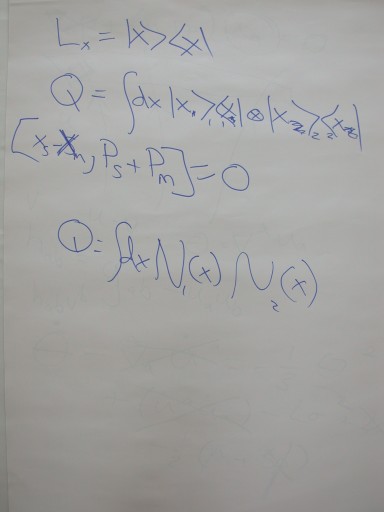 Lₓ = |x⟩⟨x|
Q = ∫dx |x₁⟩₁ ₁⟨x₁| ⊗ |x₂⟩₂ ₂⟨x₂|
[xₛ-xₘ, Pₛ+Pₘ] = 0
Q = ∫dx N₁(x) N₂(x)